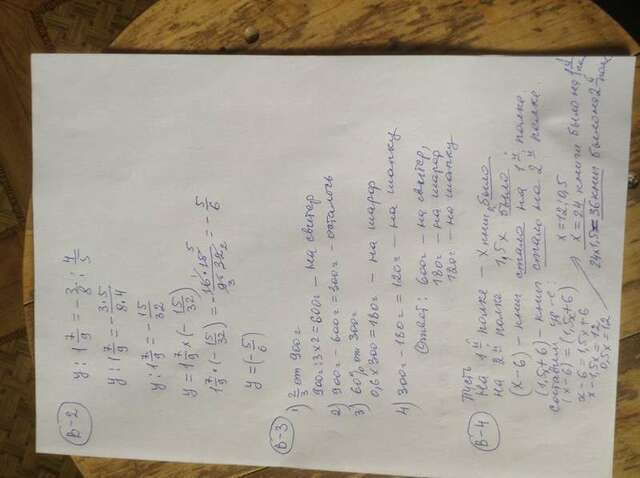 В-2
y : 1 7/9 = - 3/8 : 4/5
y : 1 7/9 = - 3·5/8·4
y : 1 7/9 = - 15/32
y = 1 7/9 × (- 15/32)
1 7/9 · (- 15/32) = - 16·15/9·32 = - 5/6
y = (- 5/6)
В-3
1) 2/3 от 900г
900г : 3 × 2 = 600г – на свитер
2) 900г – 600г = 300г – осталось
3) 60% от 300г
0,6 × 300 = 180г – на шарф
4) 300г – 180г = 120г – на шапку
Ответ: 600г – на свитер,
180г – на шарф
120г – на шапку
В-4
Пусть
На 1й полке – x книг было
на 2й полке 1,5x было.
(x-6) – книг стало на 1й полке
(1,5+6) – книг стало на 2й полке.
Составим ур-е:
(x-6) = (1,5x+6)
x-6 = 1,5x+6
x-1,5x = 12
0,5x = 12
x = 12 : 0,5
x = 24 книги было на 1й
24×1,5 = 36 книг было на 2й